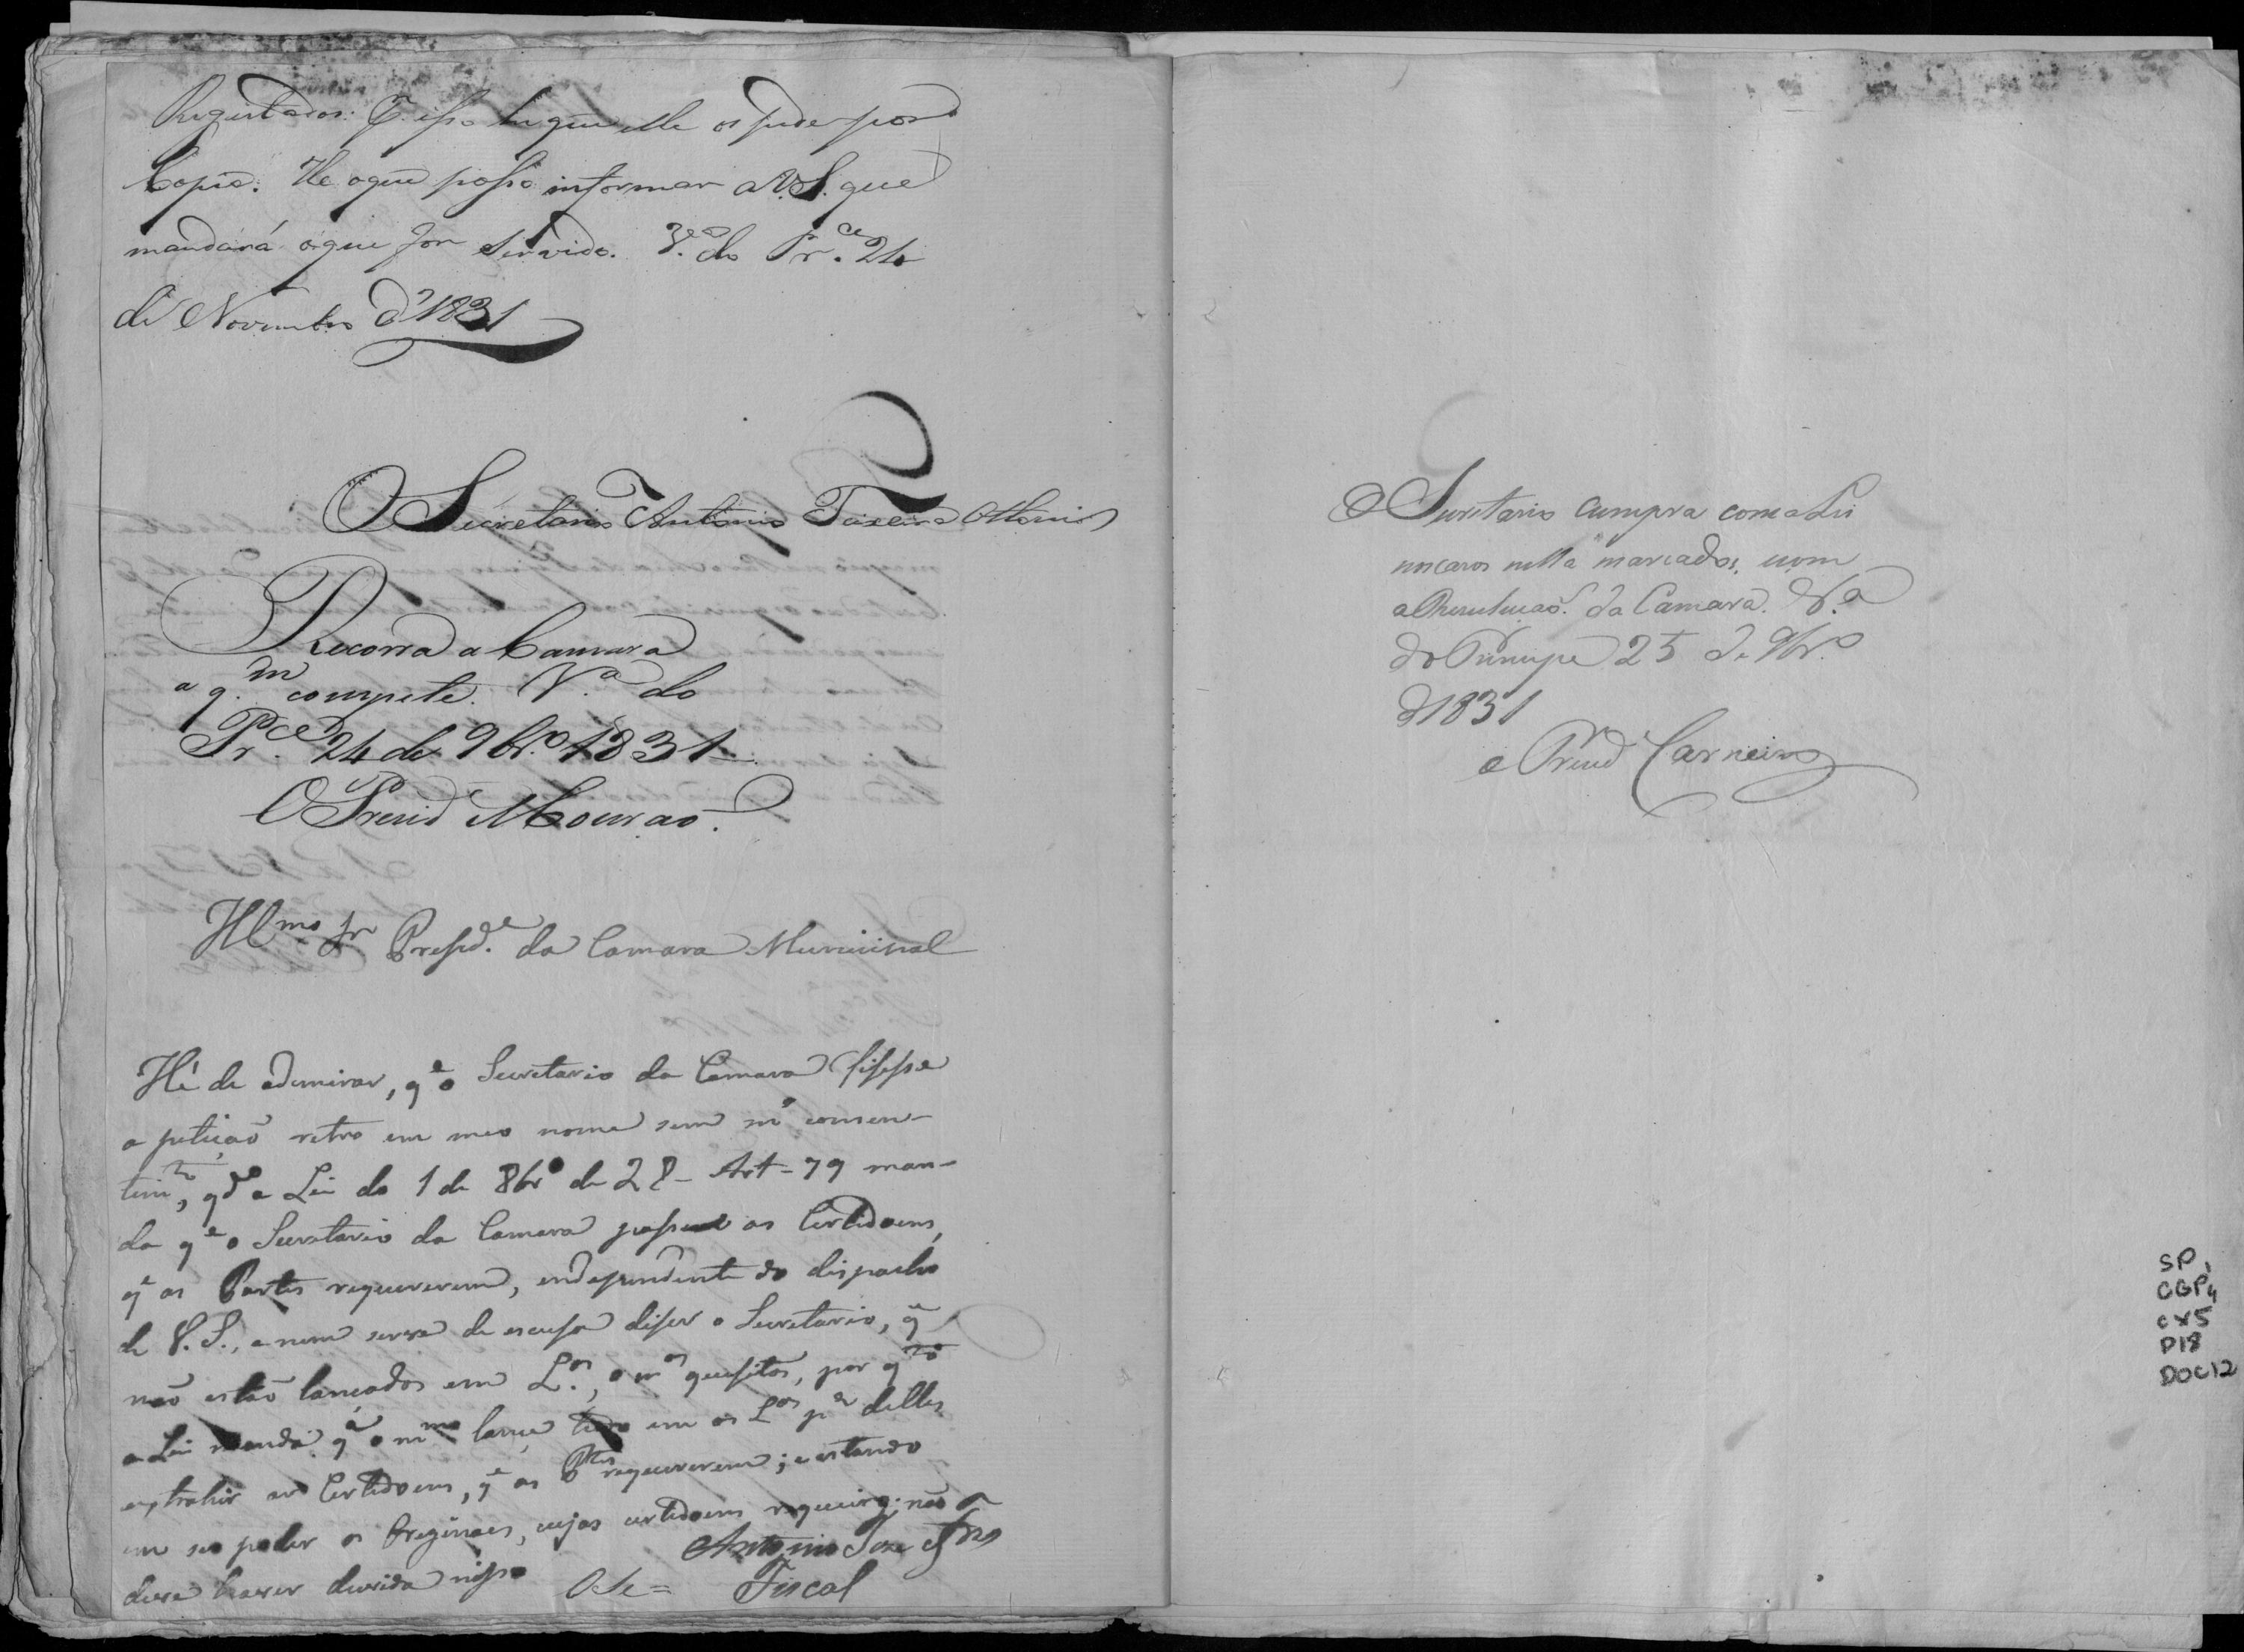 Registados: E isso he que elle os pede por
Copia. He oque posso informar a V.S. que
mandará oque for servido. V.ª do Pr.ce 24
de Novembro d'1831
O Secretario Antonio Teixeira Ottoni
Recorra a Camara
a q.m compete. V.ª do
Pr.ce 24 de 9br.o 1831
O Presid Mourão.
Illmo Sr Presid.e da Camara Municipal
Hé de admirar, q.e o Secretario da Camara fisesse
a petição retro em meo nome sem m.ª consen-
tim.to, q.do a Lei do 1 de 8br.o de 28 - Art - 79 man-
da q.e o Secretario da Camara passe as Certidoens,
q.e as Partes requererem, endependente do dispacho
de V.S., e nem serve de escusa diser o Secretario, q.e
não estão lançados em L.os, o m.os quesitos, por q.to
a Lei manda q.e o m.mo lance tudo em os L.os p.a delles
extrahir as Certidoens, q.e as P.tes requererem; e estando
em seo poder os Originaes, cujas certidoens requeiro; não
deve haver duvida nisso
Antonio Joze Frz
O Se =
Fiscal
O Secretario cumpra com a Lei
nos casos nella marcados, e com
a Resolução da Camara. V.ª
do Principe 25 de 9br.o
d1831
o Presid Carneiro
SP,
CGP4
CX5
P18
DOC12